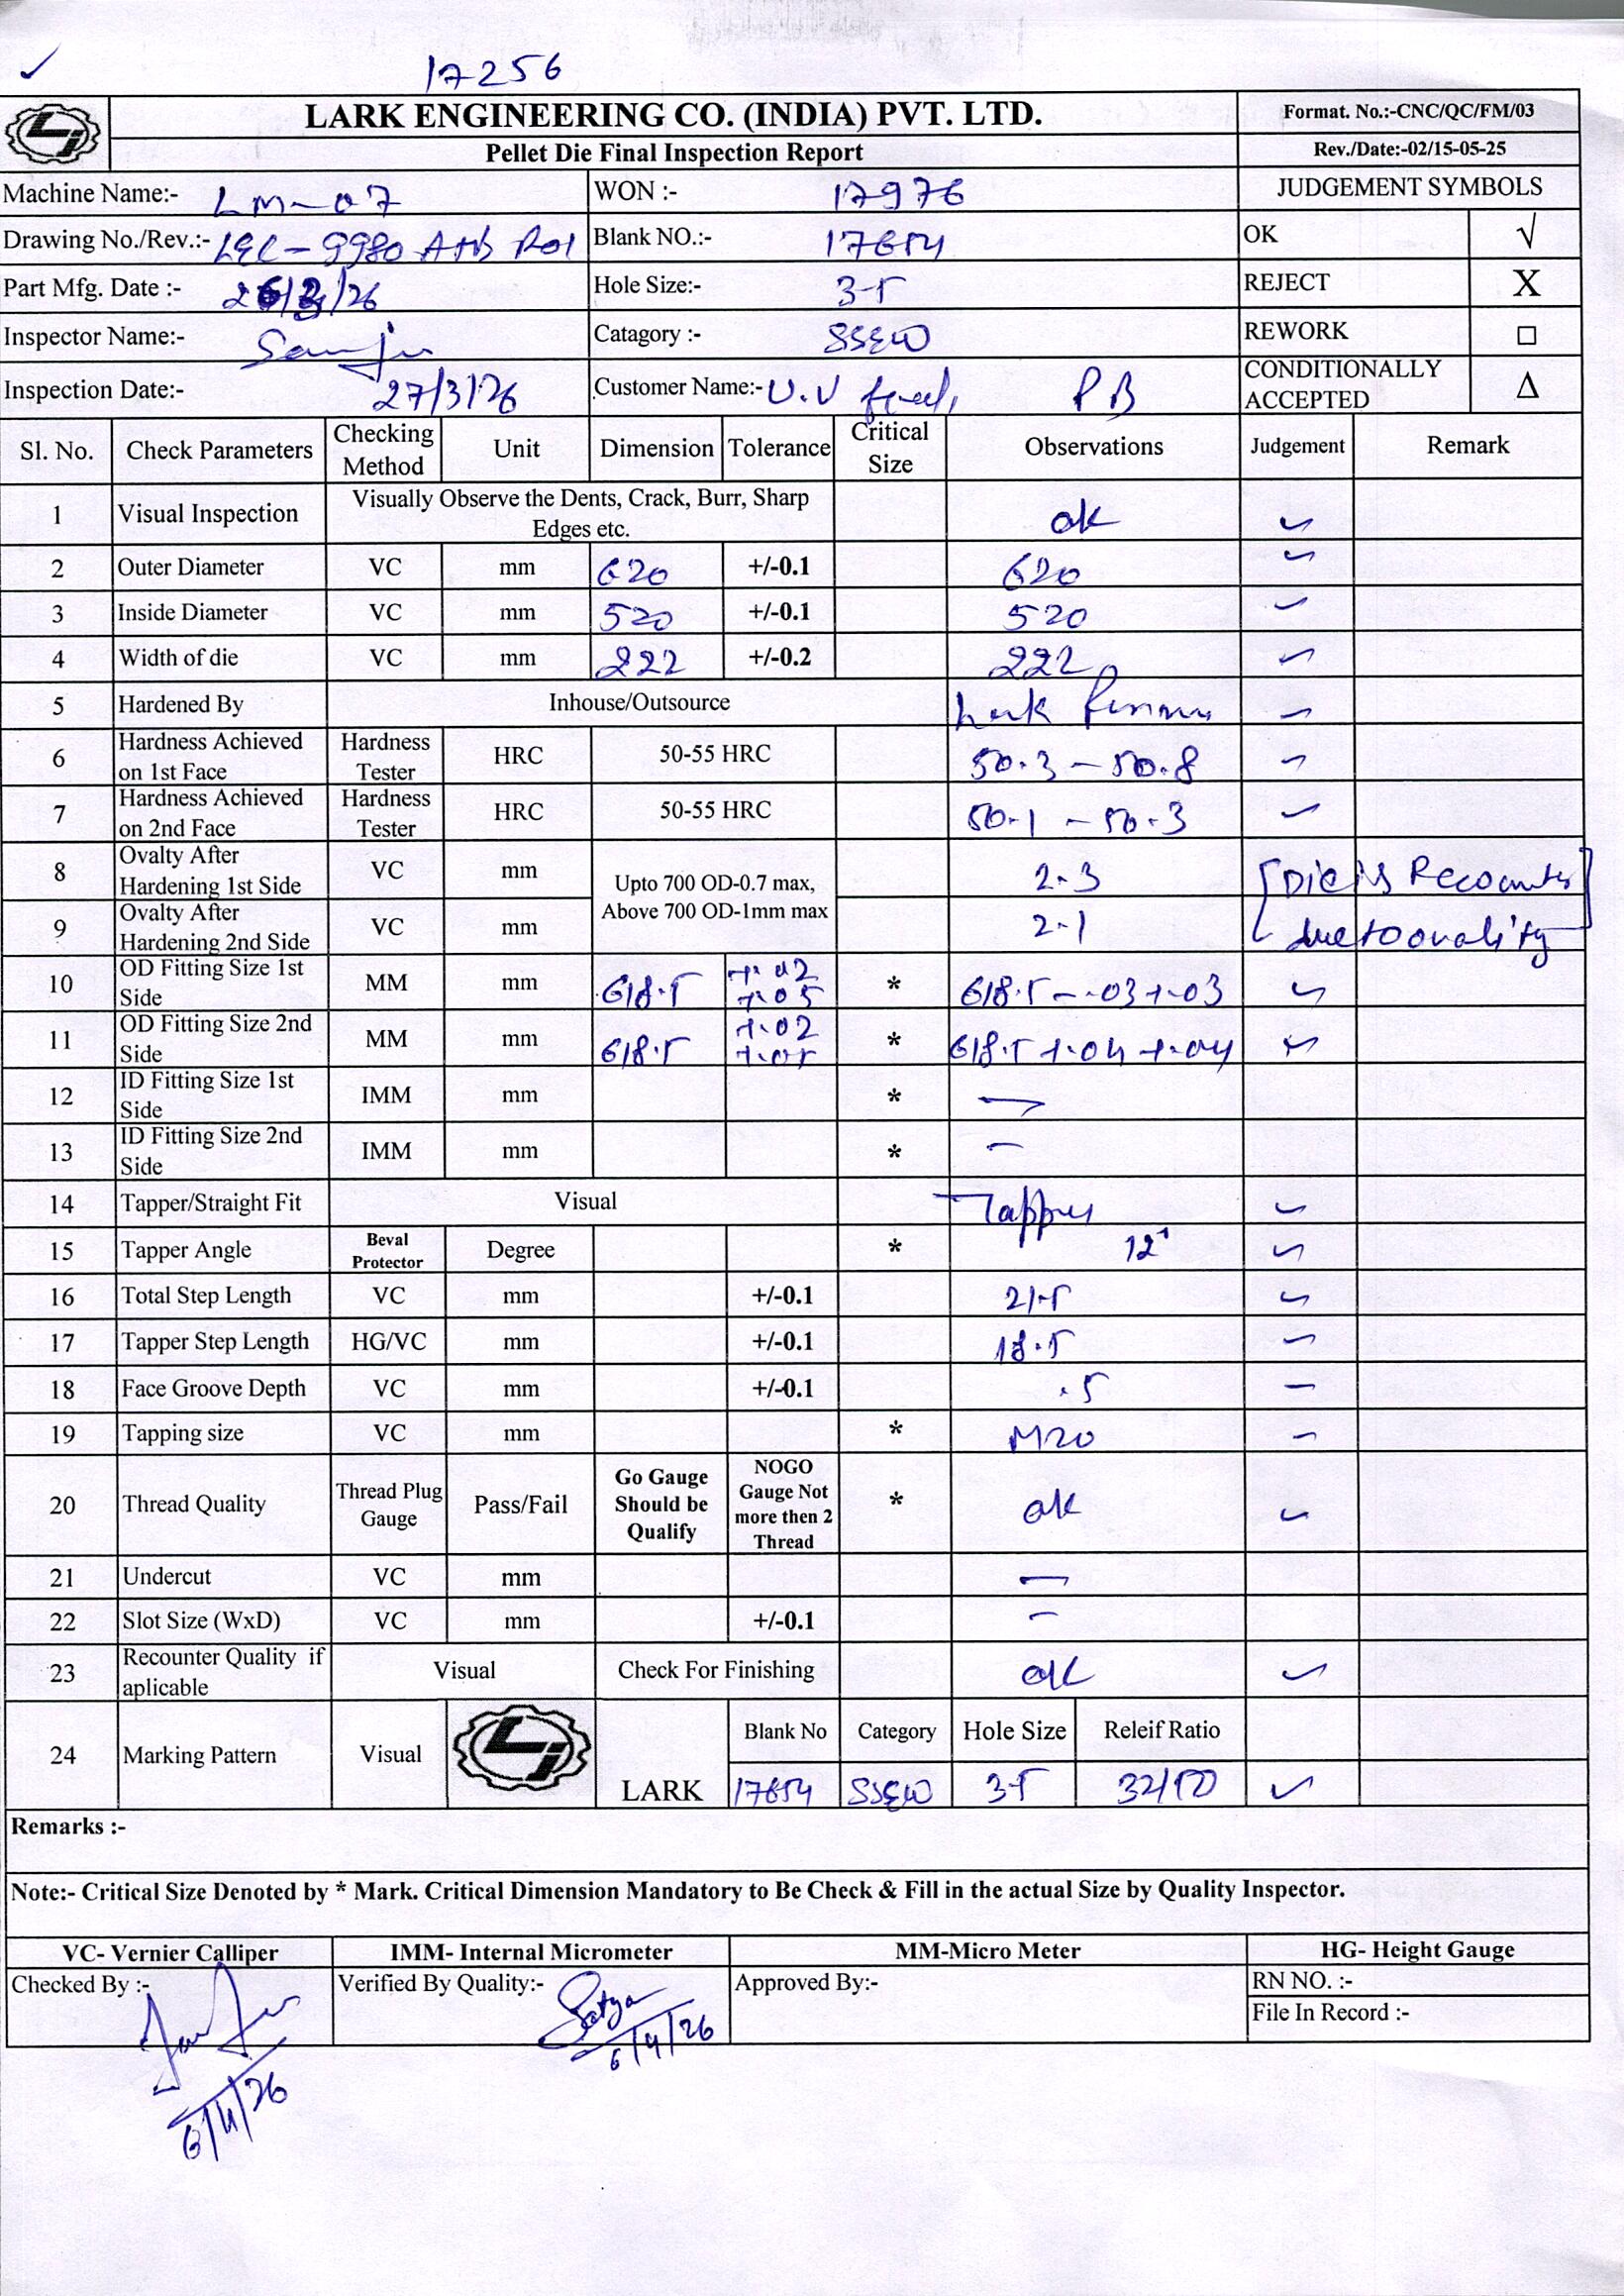 17256
LARK ENGINEERING CO. (INDIA) PVT. LTD.
Format. No.:-CNC/QC/FM/03
Pellet Die Final Inspection Report
Rev./Date:-02/15-05-25
Machine Name:- LM-07
WON :- 17976
JUDGEMENT SYMBOLS
Drawing No./Rev.:- LEC-9980 A+B R01
Blank NO.:- 17654
OK √
Part Mfg. Date :- /26
Hole Size:- 3.5
REJECT X
Inspector Name:- Sanju
Catagory :- SSEW
REWORK □
Inspection Date:- 27/3/26
Customer Name:- U.V feed, PB
CONDITIONALLY ACCEPTED Δ
Sl. No. Check Parameters Checking Method Unit Dimension Tolerance Critical Size Observations Judgement Remark
1 Visual Inspection Visually Observe the Dents, Crack, Burr, Sharp Edges etc. ok ✓
2 Outer Diameter VC mm 620 +/-0.1 620 ✓
3 Inside Diameter VC mm 520 +/-0.1 520 ✓
4 Width of die VC mm 222 +/-0.2 222 ✓
5 Hardened By Inhouse/Outsource Lark ✓
6 Hardness Achieved on 1st Face Hardness Tester HRC 50-55 HRC 50.3-50.8 ✓
7 Hardness Achieved on 2nd Face Hardness Tester HRC 50-55 HRC 50.1-50.3 ✓
8 Ovalty After Hardening 1st Side VC mm Upto 700 OD-0.7 max, Above 700 OD-1mm max 2.3 [Die is Recounter
9 Ovalty After Hardening 2nd Side VC mm 2.1 due to ovality]
10 OD Fitting Size 1st Side MM mm 618.5 +.02 +.05 * 618.5 -.03+.03 ✓
11 OD Fitting Size 2nd Side MM mm 618.5 +.02 +.05 * 618.5 +.04 +.04 ✓
12 ID Fitting Size 1st Side IMM mm * —
13 ID Fitting Size 2nd Side IMM mm * —
14 Tapper/Straight Fit Visual Tapper ✓
15 Tapper Angle Beval Protector Degree * 12° ✓
16 Total Step Length VC mm +/-0.1 21.5 ✓
17 Tapper Step Length HG/VC mm +/-0.1 18.5 ✓
18 Face Groove Depth VC mm +/-0.1 .5 —
19 Tapping size VC mm * M20 ✓
20 Thread Quality Thread Plug Gauge Pass/Fail Go Gauge Should be Qualify NOGO Gauge Not more then 2 Thread * ok ✓
21 Undercut VC mm —
22 Slot Size (WxD) VC mm +/-0.1 —
23 Recounter Quality if aplicable Visual Check For Finishing ok ✓
24 Marking Pattern Visual LARK Blank No Category Hole Size Releif Ratio
17654 SSEW 3.5 32/50 ✓
Remarks :-
Note:- Critical Size Denoted by * Mark. Critical Dimension Mandatory to Be Check & Fill in the actual Size by Quality Inspector.
VC- Vernier Calliper IMM- Internal Micrometer MM-Micro Meter HG- Height Gauge
Checked By :- Sanju 6/4/26
Verified By Quality:- Satya 6/4/26
Approved By:-
RN NO. :-
File In Record :-